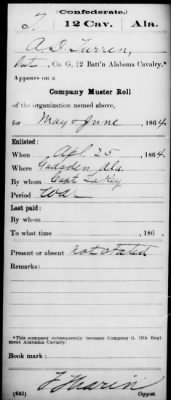 Confederate.
T 12 Cav. Ala.
A. D. Turren,
Pvt, Co. G, 12 Batt'n Alabama Cavalry.*
Appears on a
Company Muster Roll
of the organization named above,
for May & June, 1864
Enlisted:
When Apl. 25, 1864.
Where Gadsden, Ala.
By whom Capt
Period War
Last paid:
By whom
To what time , 186 .
Present or absent not stated
Remarks:
*This company subsequently became Company G, 12th Regiment Alabama Cavalry.
Book mark:
(642) Copyist.